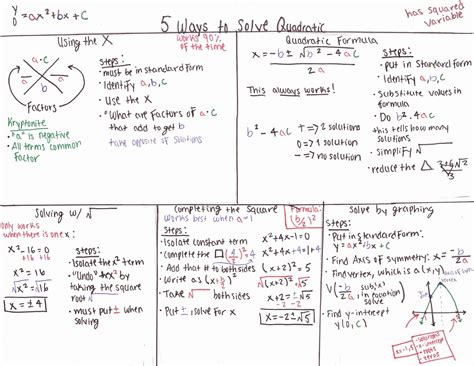 y
0 = ax²+bx+c
5 Ways to Solve Quadratic
has squared
variable
Using the X
works 90%
of the time
a·c
b
Factors
Kryptonite
• "a" is negative
• All terms common
Factor
steps:
• must be in standard form
• Identify a,b,c
• Use the X
• "What are factors of a·c
that add to get b
take opposite of solutions
Quadratic Formula
x = -b ± √b² - 4ac
2a
This always works!
b² - 4ac
+ => 2 solutions
0 => 1 solution
- => no solution
steps:
• put in standard Form
• Identify a,b,c
• Substitute values in
formula
• Do b²-4ac
this tells how many
solutions
• simplify √
• reduce the
Solving w/ √
only works
when there is one x:
x² - 16 = 0
+16 +16
x² = 16
√x² = √16
x = ±4
steps:
• Isolate the x² term
• "Undo" x² by
taking the square
root √
• must put ± when
solving
Completing the Square
Works best when a=1
Formula:
(b/2)²
Steps:
• Isolate constant term
• complete the □
• Add that # to both sides
• Write as (x+b/2)²
• Take √ both sides
• Put ±, solve for x
x²+4x-1=0
(x+2)²=5
x+2=±√5
x=-2±√5
Solve by graphing
Steps:
• Put in standard form:
y = ax²+bx+c
• Find Axis of symmetry: x = -b/2a
• Find vertex, which is a (x,y)
• Find y-intercept
y(0,c)